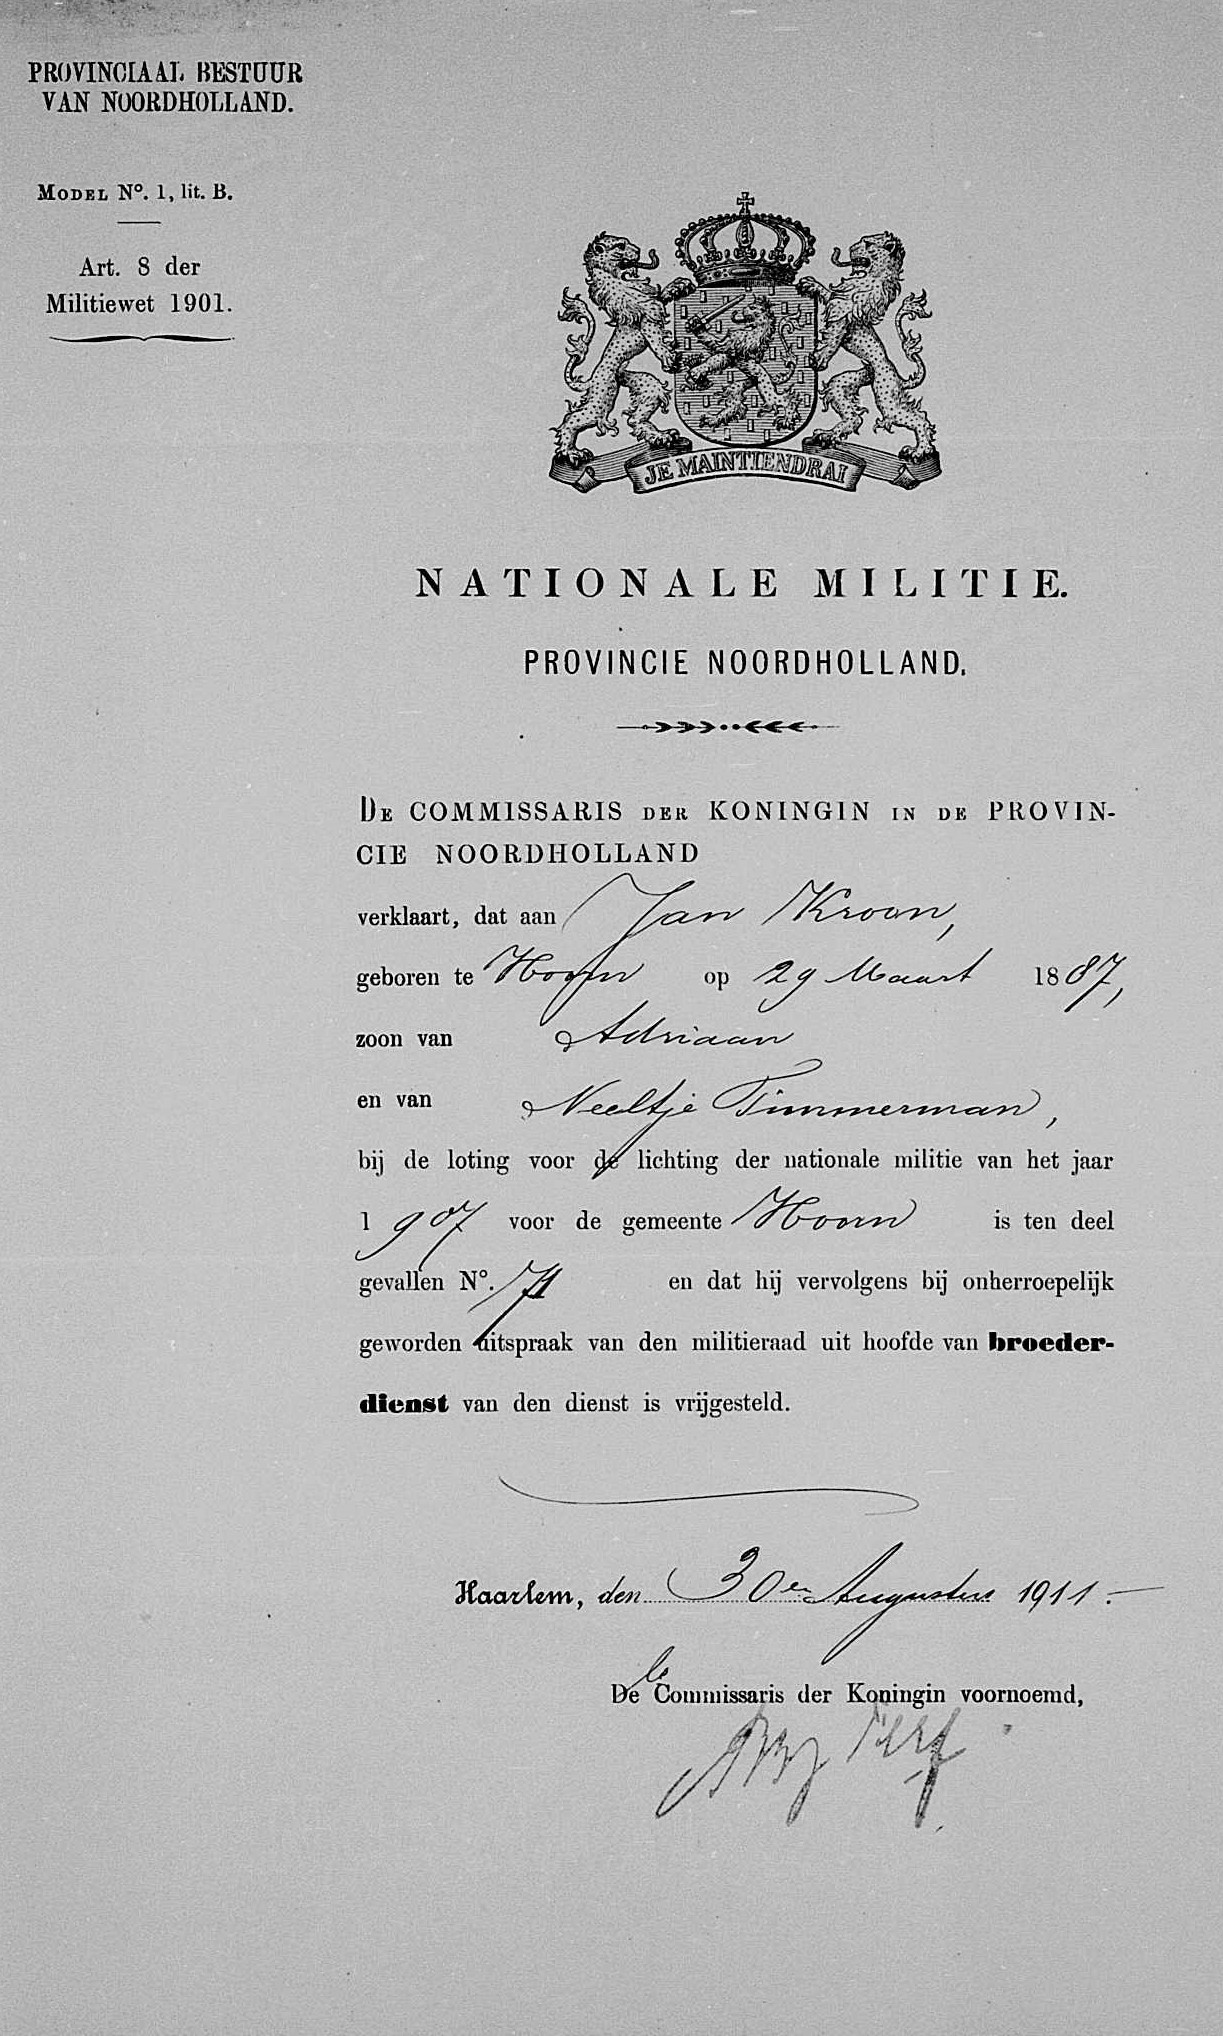 PROVINCIAAL BESTUUR
VAN NOORDHOLLAND.
MODEL No. 1, lit. B.
Art. 8 der
Militiewet 1901.
JE MAINTIENDRAI
NATIONALE MILITIE.
PROVINCIE NOORDHOLLAND.
DE COMMISSARIS DER KONINGIN IN DE PROVIN-
CIE NOORDHOLLAND
verklaart, dat aan Jan Kroon,
geboren te Hoorn op 29 Maart 1887,
zoon van Adriaan
en van Neeltje Timmerman,
bij de loting voor de lichting der nationale militie van het jaar
1907 voor de gemeente Hoorn is ten deel
gevallen No. 71 en dat hij vervolgens bij onherroepelijk
geworden uitspraak van den militieraad uit hoofde van broeder-
dienst van den dienst is vrijgesteld.
Haarlem, den 30en Augustus 1911.
De Commissaris der Koningin voornoemd,